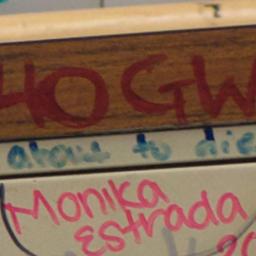 HOGW
about to die
Monika
Estrada